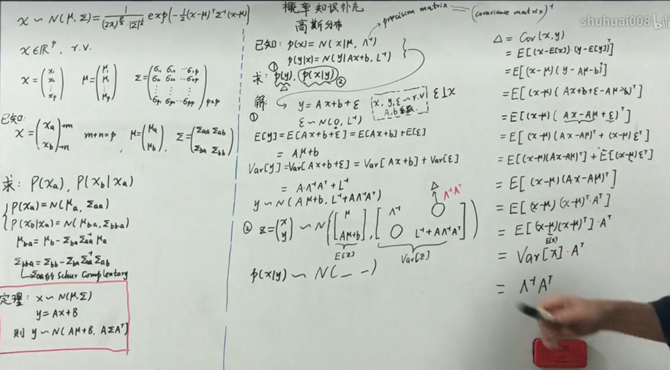 x ~ N(μ,Σ) = 1/((2π)^{p/2}|Σ|^{1/2}) exp(-½(x-μ)^T Σ^{-1}(x-μ))
x∈ℝ^p, r.v.
x = (x₁ x₂ ⋮ x_p) μ = (μ₁ μ₂ ⋮ μ_p) Σ = (σ₁₁ σ₁₂ ⋯ σ₁p σ₂₁ σ₂₂ ⋯ σ₂p ⋮ ⋮ ⋮ σp₁ σp₂ ⋯ σpp)_{p×p}
已知:
x = (x_a x_b) →m →n m+n=p, μ = (μ_a μ_b), Σ = (Σ_aa Σ_ab Σ_ba Σ_bb)
求: P(x_a), P(x_b|x_a)
P(x_a) = N(μ_a, Σ_aa)
P(x_b|x_a) = N(μ_{b·a}, Σ_{bb·a})
μ_{b·a} = μ_b - Σ_ba Σ_aa^{-1} μ_a
Σ_{bb·a} = Σ_bb - Σ_ba Σ_aa^{-1} Σ_ab
Σ_aa的 Schur Complementary
定理: x ~ N(μ,Σ)
y = Ax+B
则 y ~ N(Aμ+B, AΣA^T)
概率知识补充
高斯分布
precision matrix = (covariance matrix)^{-1}
已知: p(x) = N(x|μ, Λ^{-1})
p(y|x) = N(y|Ax+b, L^{-1})
求: ① p(y), p(x|y) ②
解: y = Ax+b+ε
ε ~ N(0, L^{-1})
x, y, ε ~ r.v.
ε⊥x
①
E[y] = E[Ax+b+ε] = E[Ax+b] + E[ε]
= Aμ+b
Var[y] = Var[Ax+b+ε] = Var[Ax+b] + Var[ε]
= A·Λ^{-1}A^T + L^{-1}
y ~ N(Aμ+b, L^{-1}+AΛ^{-1}A^T)
② z = (x y) ~ N([μ Aμ+b], [Λ^{-1} ○ ○ L^{-1}+AΛ^{-1}A^T])
Δ Λ^{-1}A^T
E[z] Var[z]
p(x|y) ~ N(_ _)
Δ = Cov(x,y)
= E[(x-E[x])·(y-E[y])^T]
= E[(x-μ)(y-Aμ-b)^T]
= E[(x-μ)(Ax+b+ε-Aμ-b)^T]
= E[(x-μ)(Ax-Aμ+ε)^T]
= E[(x-μ)(Ax-Aμ)^T + (x-μ)ε^T]
= E[(x-μ)(Ax-Aμ)^T] + E[(x-μ)ε^T]
= E[(x-μ)(Ax-Aμ)^T]
= E[(x-μ)(x-μ)^T·A^T]
= E[(x-μ)(x-μ)^T]·A^T
= Var[x]·A^T
= Λ^{-1}A^T
shuhuai008